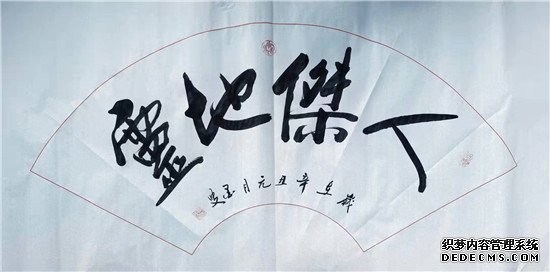 人傑地靈
歲在辛丑元月
织梦内容管理系统
DEDECMS.COM